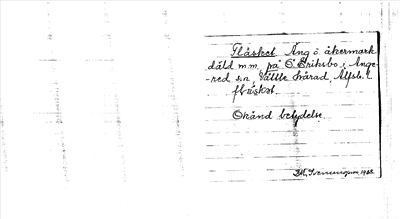 Flåsket. Äng o. åkermark
däld m.m. på Ö. Eriksbo i Ange-
-red s:n Vättle härad, Älfsb. l.
flåsket.
Okänd betydelse.
1928